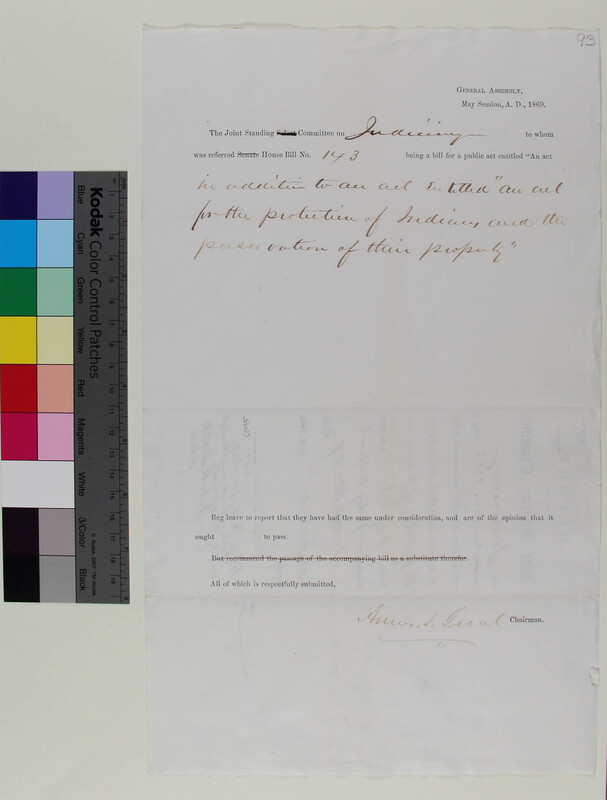 93
GENERAL ASSEMBLY,
May Session, A. D., 1869.
The Joint Standing Select Committee on Judiciary to whom
was referred Senate House Bill No. 143 being a bill for a public act entitled "An act
in addition to an act Entitled "an act
for the protection of Indians and the
preservation of their property"
Beg leave to report that they have had the same under consideration, and are of the opinion that it
ought to pass.
But recommend the passage of the accompanying bill as a substitute therefor.
All of which is respectfully submitted,
Amos S. Treat Chairman.
Kodak Color Control Patches
Blue
Cyan
Green
Yellow
Red
Magenta
White
3/Color
Black
© Kodak, 2007 TM: Kodak